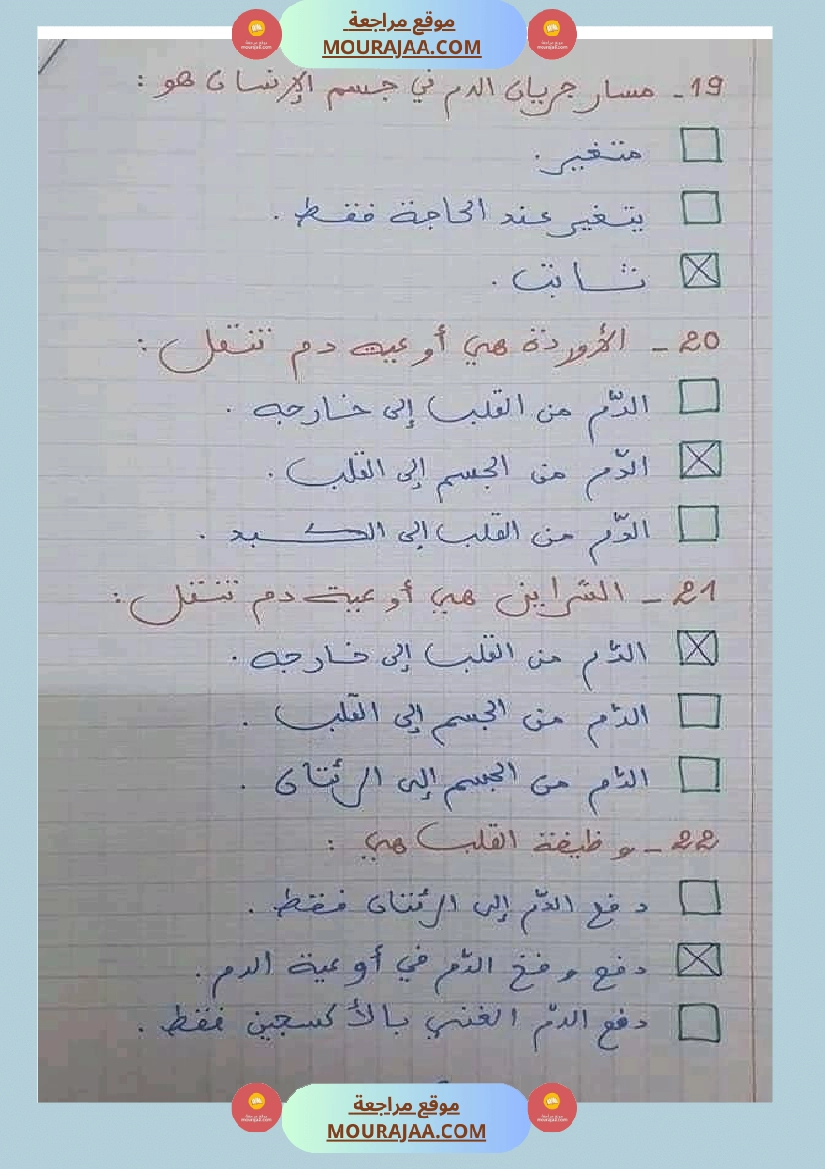 موقع مراجعة
MOURAJAA.COM
19- مسار جريان الدم في جسم الإنسان هو :
متغير.
يتغير عند الحاجة فقط.
ثابت.
20- الأوردة هي أوعية دم تنتقل :
الدّم من القلب إلى خارجه.
الدّم من الجسم إلى القلب.
الدّم من القلب إلى الكبد.
21- الشرايين هي أوعية دم تنتقل :
الدّم من القلب إلى خارجه.
الدّم من الجسم إلى القلب.
الدّم من الجسم إلى الرئتان.
22- وظيفة القلب هي :
دفع الدّم إلى الرئتان فقط.
دفع وضخ الدّم في أوعية الدم.
دفع الدّم الغني بالأكسجين فقط.
موقع مراجعة
MOURAJAA.COM